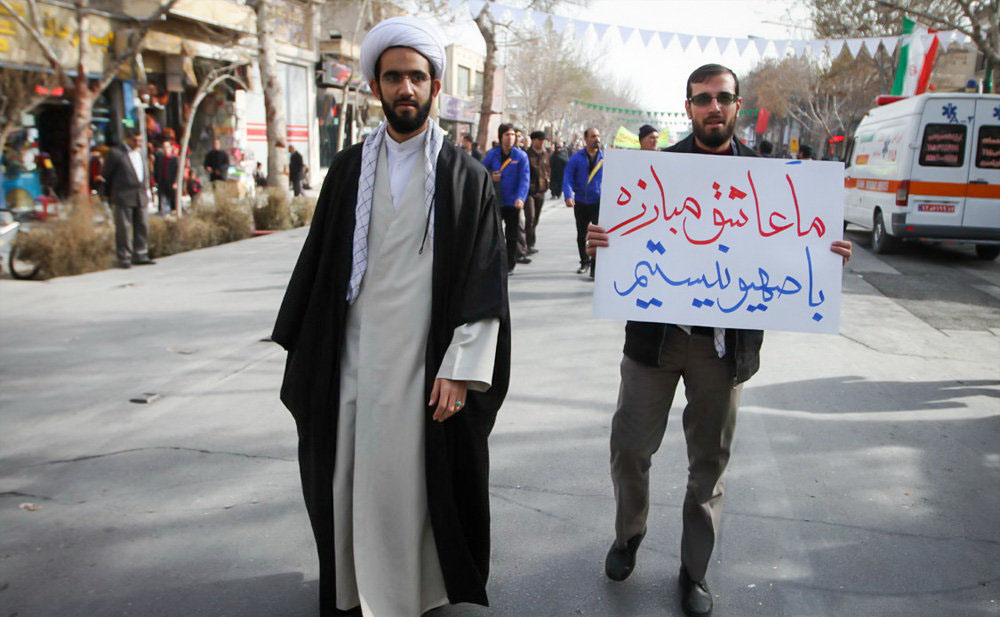 ما عاشق مبارزه
با صهیونیستیم